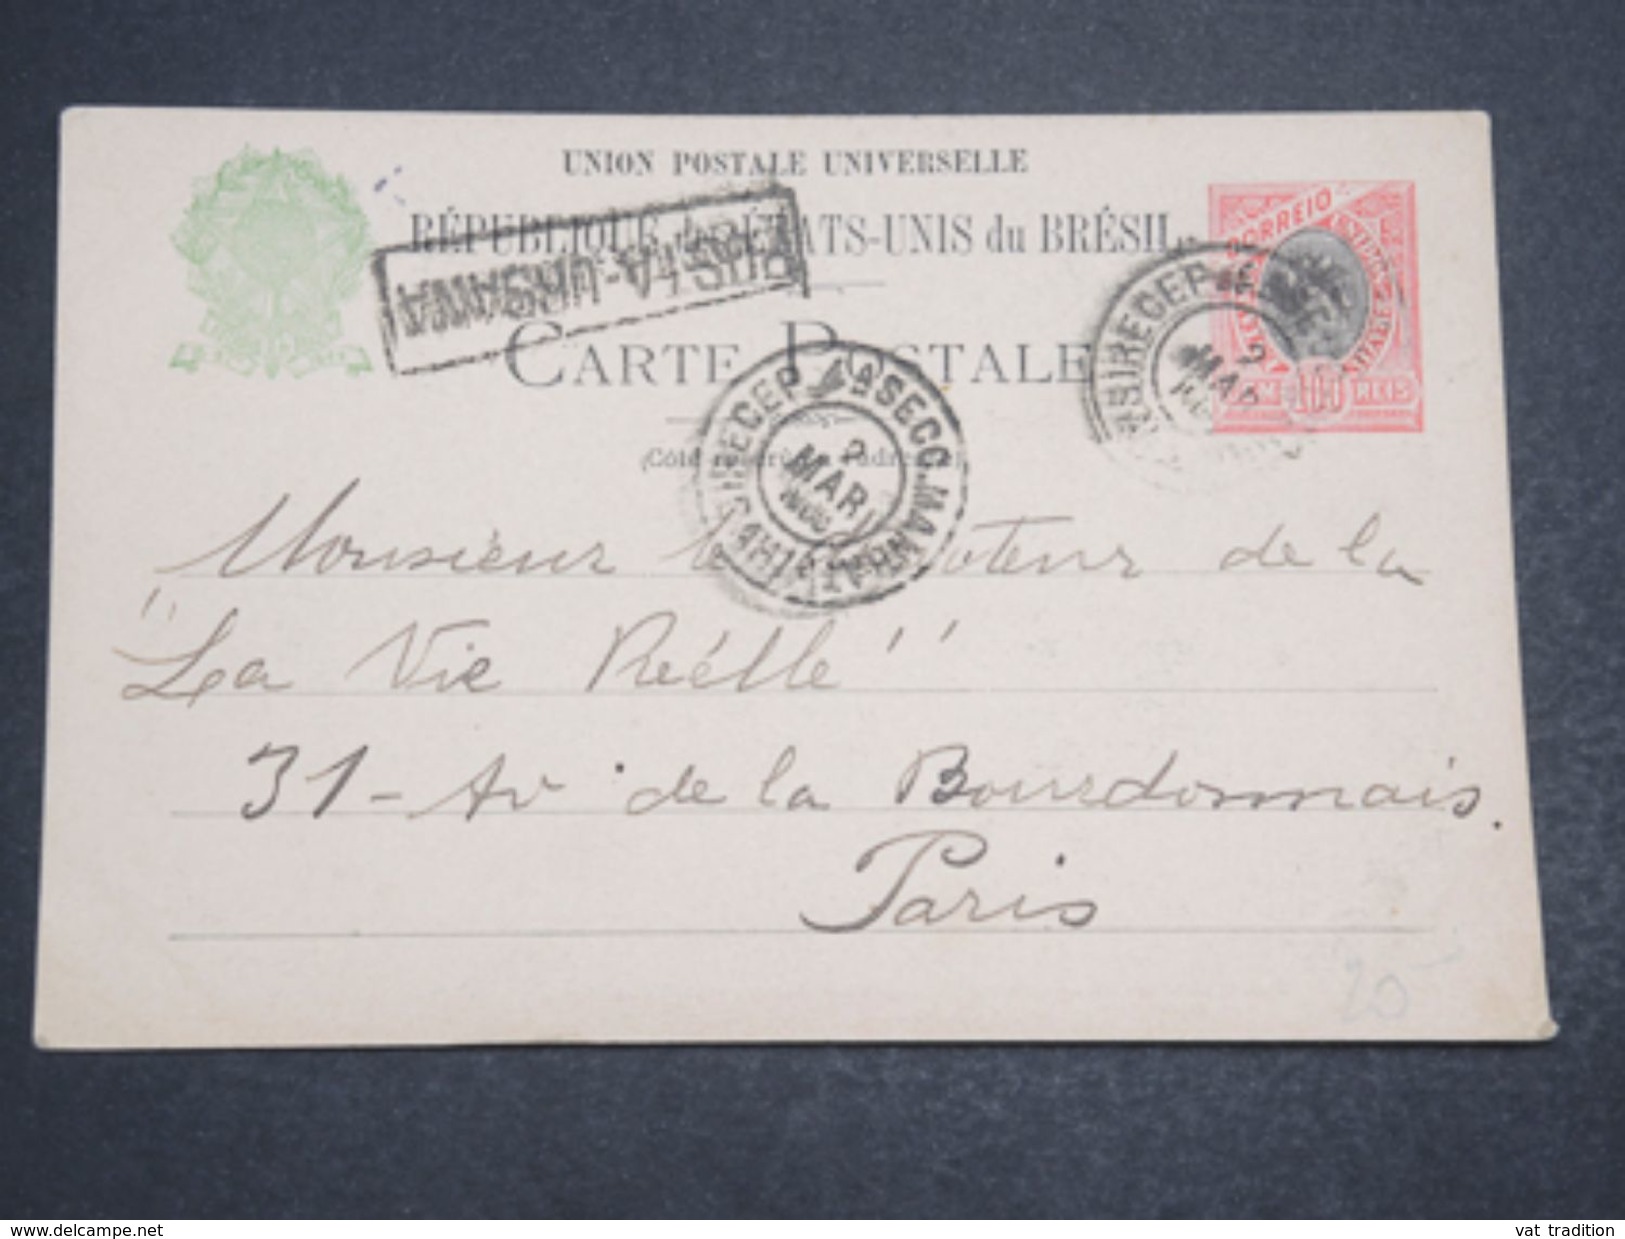 UNION POSTALE UNIVERSELLE
RÉPUBLIQUE des ÉTATS-UNIS du BRÉSIL
POSTA-URBANA
CARTE POSTALE
CORREIO
CEM 100 REIS
RECEP
2
MAR
1ª SECC.
2
MAR
Monsieur le de la
"La Vie Réélle"
31 - Av. de la Bourdonnais.
Paris
20
www.delcampe.net
vat tradition